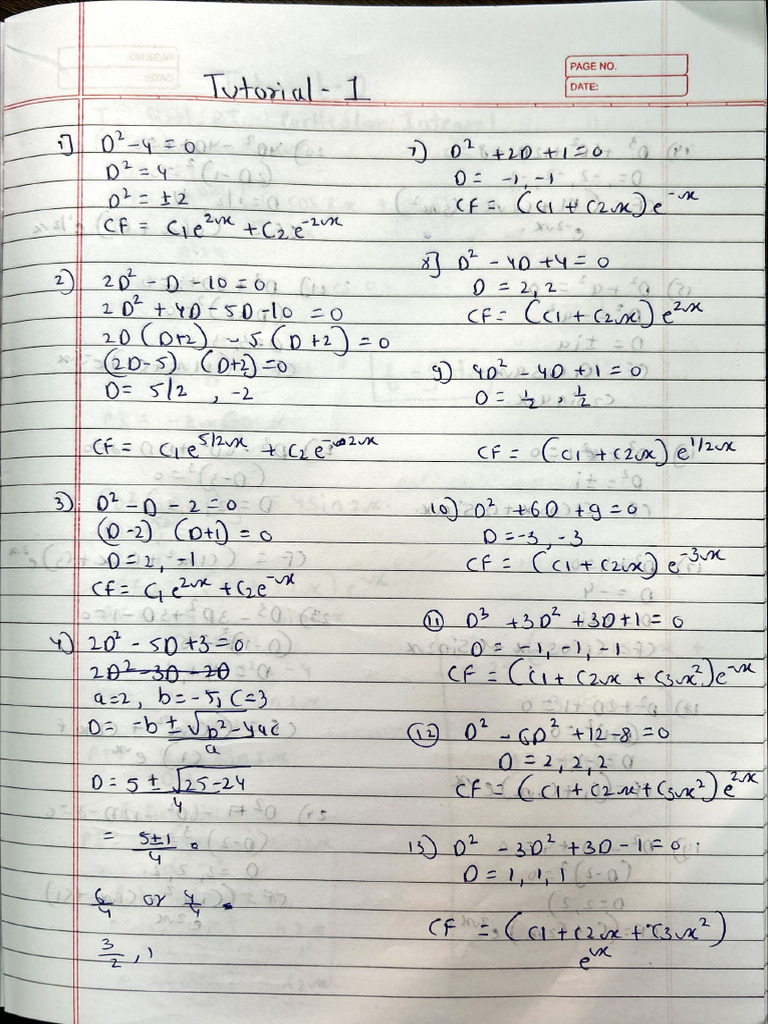 PAGE NO.
DATE:
Tutorial - 1
1] D² - 4 = 0
D² = 4
D² = ±2
CF = C1e^2x + C2e^-2x
2) 2D² - D - 10 = 0
2D² + 4D - 5D - 10 = 0
2D (D+2) - 5 (D+2) = 0
(2D-5) (D+2) = 0
D = 5/2 , -2
CF = C1e^5/2x + C2e^-2x
3) D² - D - 2 = 0
(D-2) (D+1) = 0
D = 2, -1
CF = C1e^2x + C2e^-x
4) 2D² - 5D + 3 = 0
2D² - 3D - 2D
a=2, b=-5, C=3
D = -b ± √b² - 4ac
a
D = 5 ± √25-24
4
= 5±1
4
6/4 or 4/4
3/2 , 1
7) D² + 2D + 1 = 0
D = -1, -1
CF = (C1 + C2x) e^-x
8] D² - 4D + 4 = 0
D = 2, 2
CF = (C1 + C2x) e^2x
9) 4D² - 4D + 1 = 0
D = 1/2 , 1/2
CF = (C1 + C2x) e^1/2x
10) D² + 6D + 9 = 0
D = -3, -3
CF = (C1 + C2x) e^-3x
11) D³ + 3D² + 3D + 1 = 0
D = -1, -1, -1
CF = (C1 + C2x + C3x²) e^-x
12) D² - 6D² + 12 - 8 = 0
D = 2, 2, 2
CF = (C1 + C2x + C3x²) e^2x
13) D² - 3D² + 3D - 1 = 0
D = 1, 1, 1
CF = (C1 + C2x + C3x²)
e^x